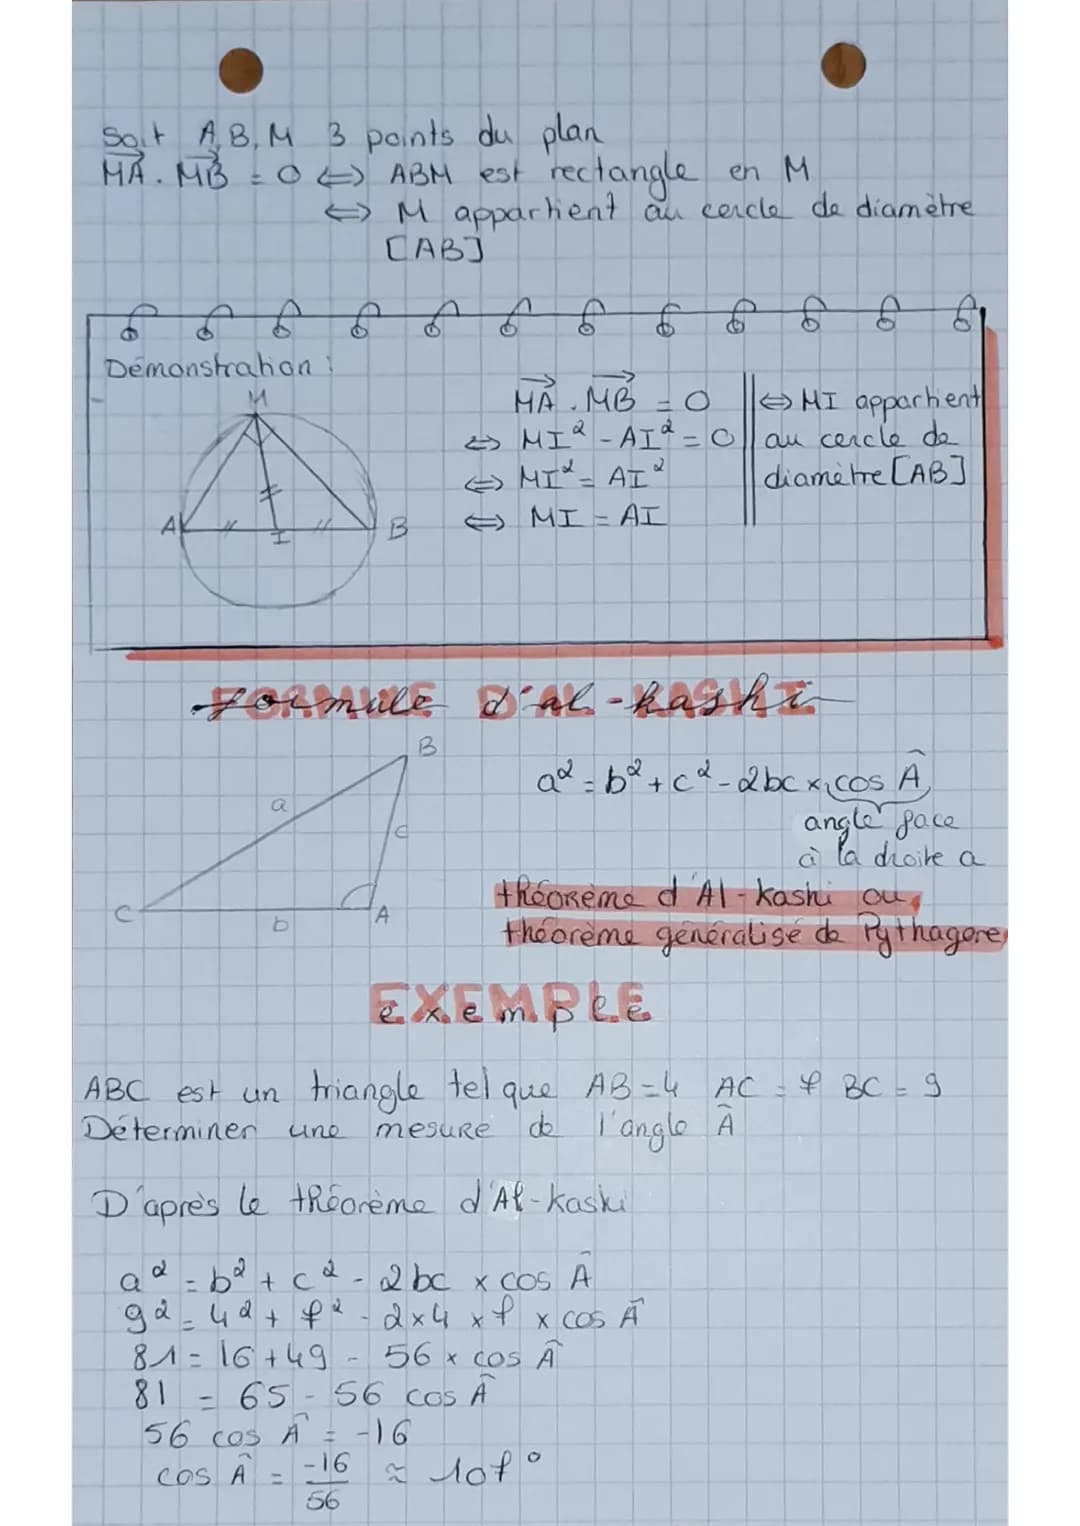 Soit A, B, M 3 points du plan
MA⃗ . MB⃗ = 0 ⟺ ABM est rectangle en M
⟺ M appartient au cercle de diamètre
[AB]
Démonstration :
M
A
I
B
MA⃗ . MB⃗ = 0
⟺ MI² - AI² = 0
⟺ MI² = AI²
⟺ MI = AI
⟺ MI appartient
au cercle de
diamètre [AB]
FORMULE D'AL-KASHI
formule d'al-kashi
B
a
c
C
b
A
a² = b² + c² - 2bc × cos Â
angle face
à la droite a
théorème d'Al-Kashi ou
théorème généralisé de Pythagore
EXEMPLE
exemple
ABC est un triangle tel que AB = 4 AC = 7 BC = 9
Déterminer une mesure de l'angle Â
D'après le théorème d'Al-Kashi
a² = b² + c² - 2bc × cos Â
9² = 4² + 7² - 2×4 × 7 × cos Â
81 = 16 + 49 - 56 × cos Â
81 = 65 - 56 cos Â
56 cos Â = -16
cos Â = -16/56 ≈ 107°